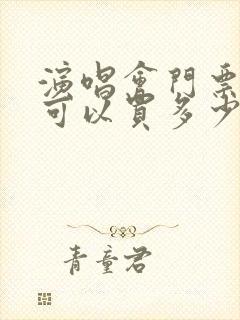 演唱會門票
可以買多少
青童君